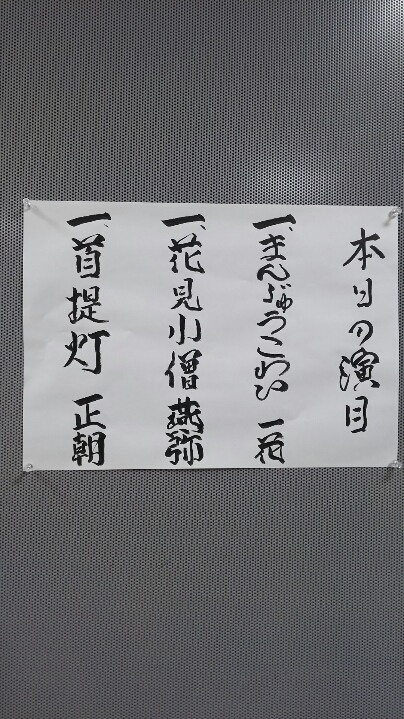 本日の演目
一、まんじゅうこわい 一花
一、花見小僧 燕弥
一、首提灯 正朝